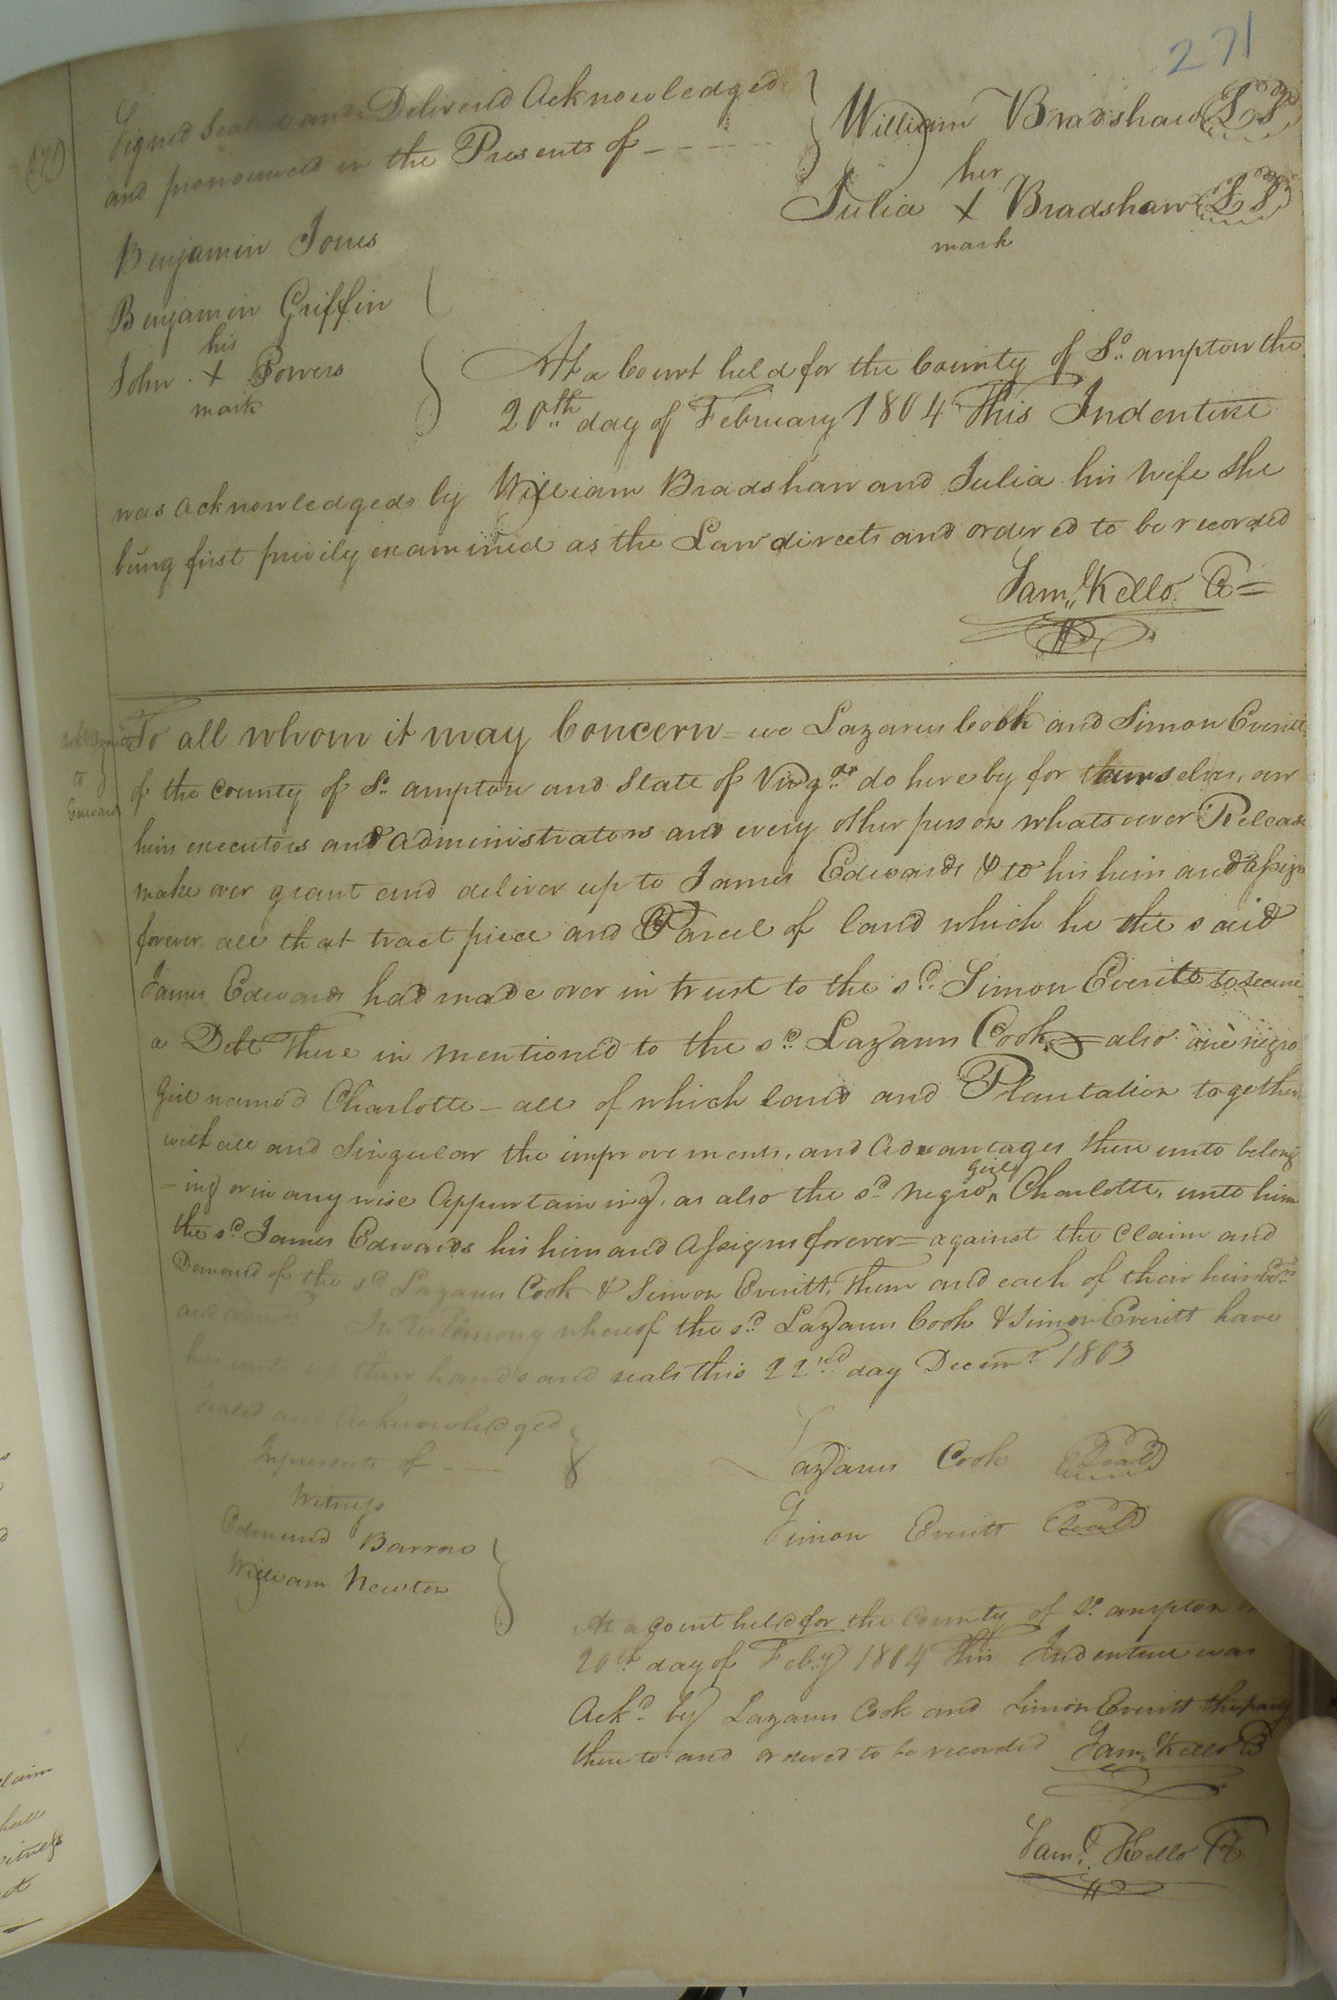 271
Signed Sealed and Deliverd Acknowledged
and pronounced in the Presents of
William Bradshaw (LS)
her
Julia X Bradshaw (LS)
mark
Benjamin Jones
Benjamin Griffin
his
John X Powers
mark
At a Court held for the County of So. ampton the
20th day of February 1804 This Indenture
was acknowledged by William Bradshaw and Julia his wife She
being first privily examined as the Law directs and ordered to be recorded
Saml. Kello C
to
Edwards
To all whom it may Concern = we Lazarus Cook and Simon Everitt
of the County of So. ampton and State of Virga. do hereby for ourselves, our
heirs executors and administrators and every other person whatsoever Release
make over grant and deliver up to James Edwards & to his heirs and assigns
forever all that tract piece and Parcel of land which he the said
James Edwards had made over in trust to the sd. Simon Everitt to secure
a Debt There in mentioned to the sd. Lazarus Cook = also one negro
Girl named Charlotte - all of which land and Plantation together
with all and Singular the improvements, and advantages there unto belong
-ing or in any wise Appurtaining, as also the sd. negro
girl
^ Charlotte, unto him
the sd. James Edwards his heirs and assigns forever = against the claim and
Demand of the sd. Lazarus Cook & Simon Everitt, Them and each of their heirs
and In Testimony whereof the sd. Lazarus Cook & Simon Everitt have
hereunto set their hands and seals this 22nd day Decemr. 1803
Sealed and Acknowledged
In presents of
Witness
Edmund Barrow
William Newton
Lazarus Cook (Seal)
Simon Everitt (Seal)
At a Court held for the County of So. ampton
20th day of Feby 1804 This Indenture was
Ackd. by Lazarus Cook and Simon Everitt the party
there to and ordered to be recorded Saml. Kello C
Saml. Kello C